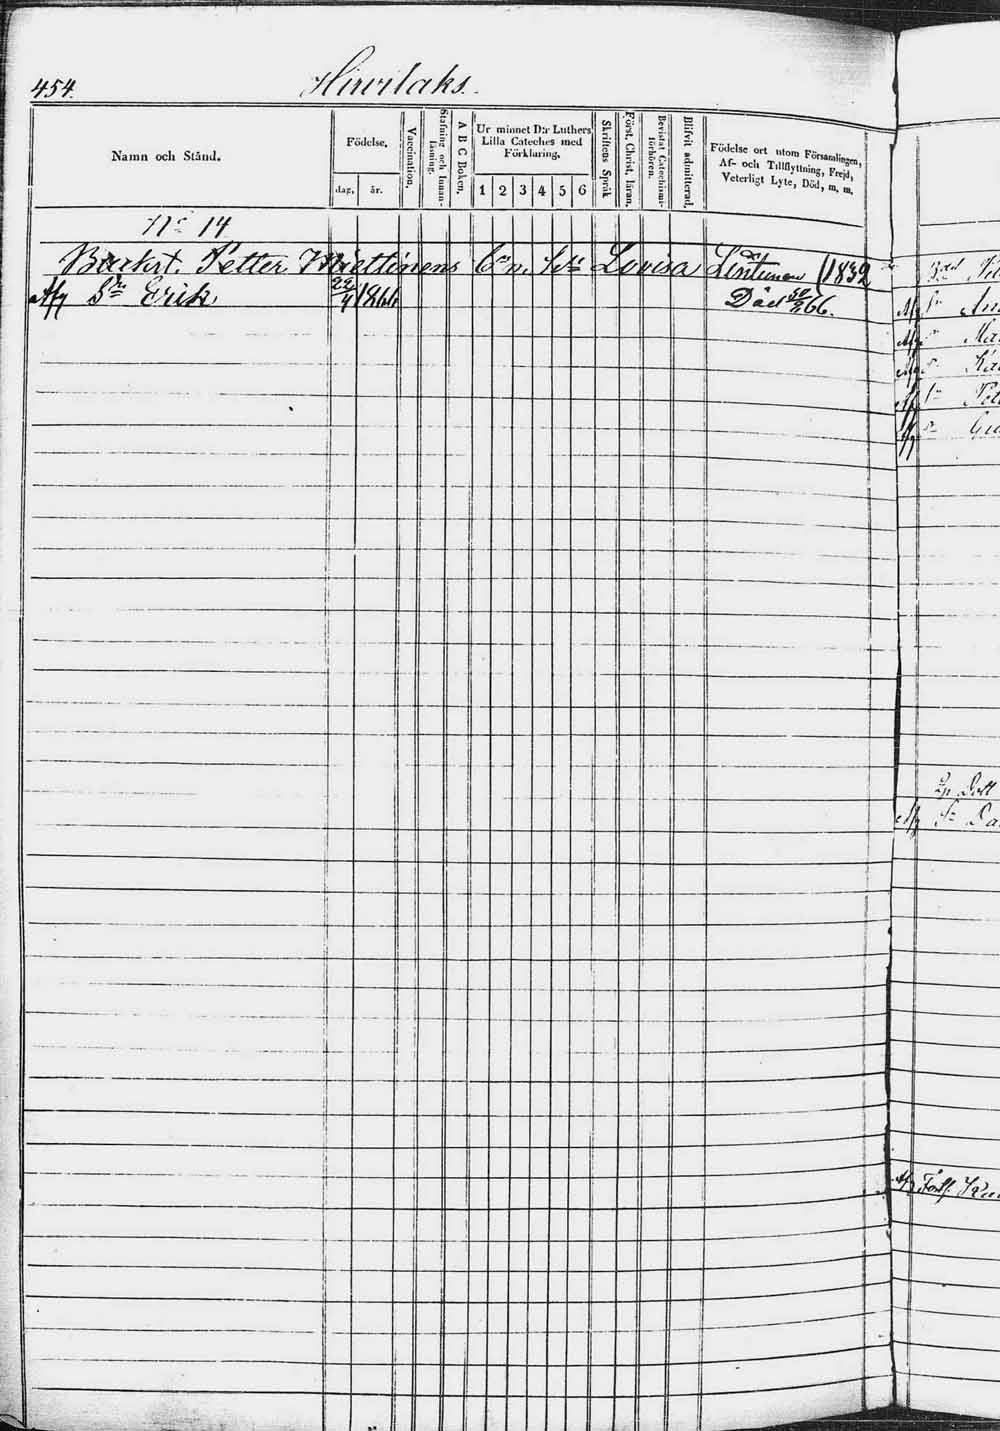 454.
Hirvilaks.
Namn och Stånd.
Födelse.
dag.
år.
Vaccination.
Stafning och Innan-läsning.
A B C Boken.
Ur minnet D:r Luthers
Lilla Cateches med
Förklaring.
1 2 3 4 5 6
Skriftens Språk
Först. Christ. läran.
Bevistat Catechismi-förhören.
Blifvit admitterad.
Födelse ort utom Församlingen,
Af- och Tillflyttning, Frejd,
Veterligt Lyte, Död, m. m.
No 14
Petter Miettinens Lovisa Lintunen (1832
Afg Sn Erik 22/4 1866 Död 30/ 66.
Afg
Afg
Afg